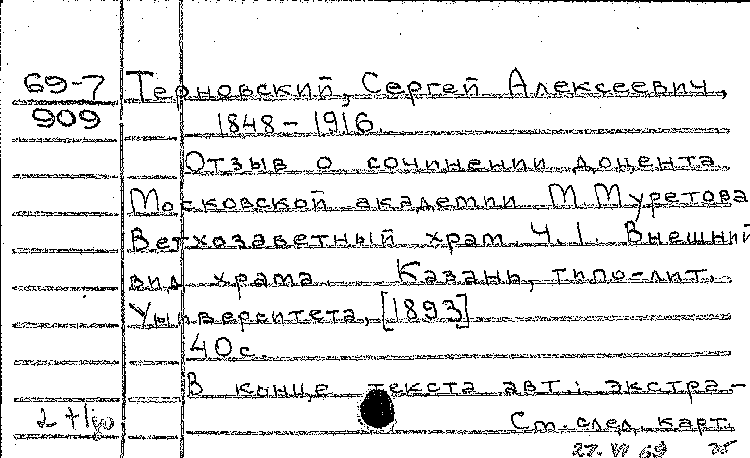 69-7 Терновский, Сергей Алексеевич,
909 1848-1916.
Отзыв о сочинении доцента
Московской академии М. Муретова
Ветхозаветный храм. Ч. I. Внешний
вид храма. Казань, типо-лит.
Университета, [1893].
40 с.
В конце текста авт.: экстра-
См. след. карт.
27. VI 69